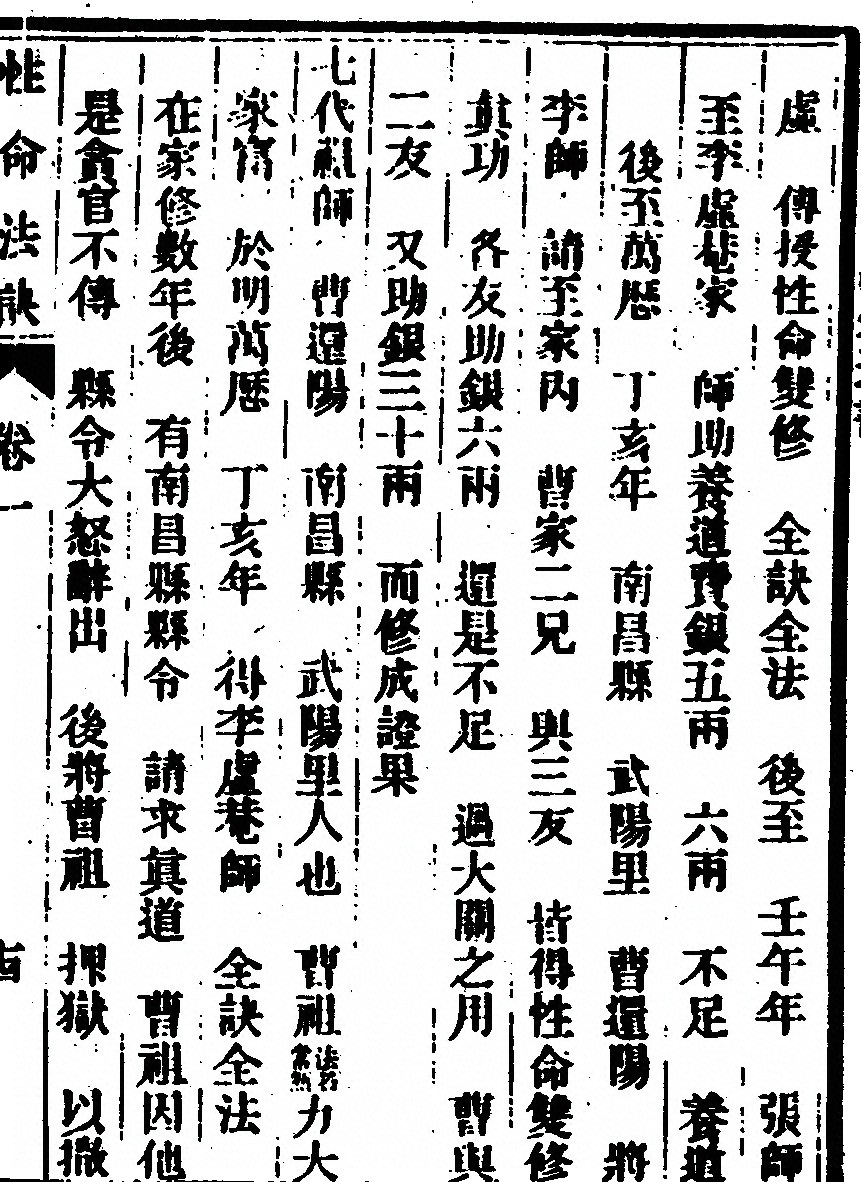 虛 傳授性命雙修 全訣全法 後至 壬午年 張師
至李虛菴家 師助養道費銀五兩 六兩 不足 養道
後至萬厯 丁亥年 南昌縣 武陽里 曹還陽 將
李師 請至家內 曹家二兄 與三友 皆得性命雙修
真功 各友助銀六兩 還是不足 過大關之用 曹與
二友 又助銀三十兩 而修成證果
七代祖師 曹還陽 南昌縣 武陽里人也 曹祖 力大
家富 於明萬厯 丁亥年 得李虛菴師 全訣全法
在家修數年後 有南昌縣縣令 請求真道 曹祖因他
是貪官不傳 縣令大怒辭出 後將曹祖 押獄 以撒
性命法訣 卷一